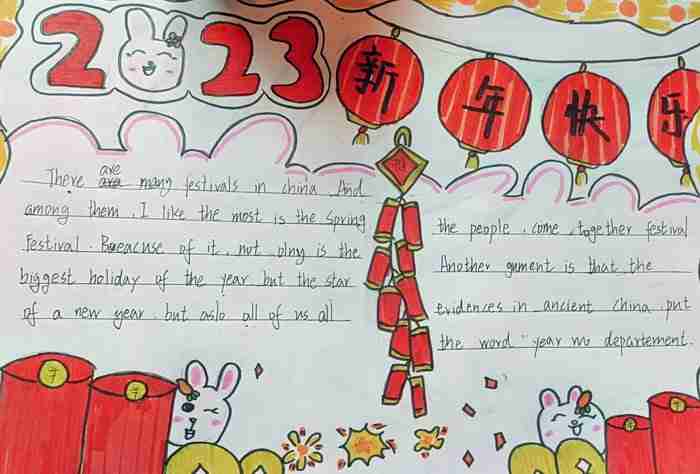 2023
新年快乐
There are many festivals in china And
among them, I like the most is the Spring
Festival. Beacuse of it, not olny is the
biggest holiday of the year but the star
of a new year, but aslo all of us all
the people, come, together festival
Another gument is that the
evidences in ancient China, put
the word "year no departement.